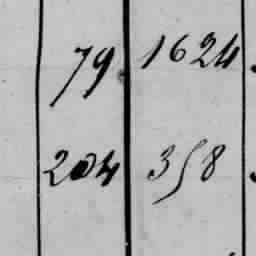 79 1624
204 358